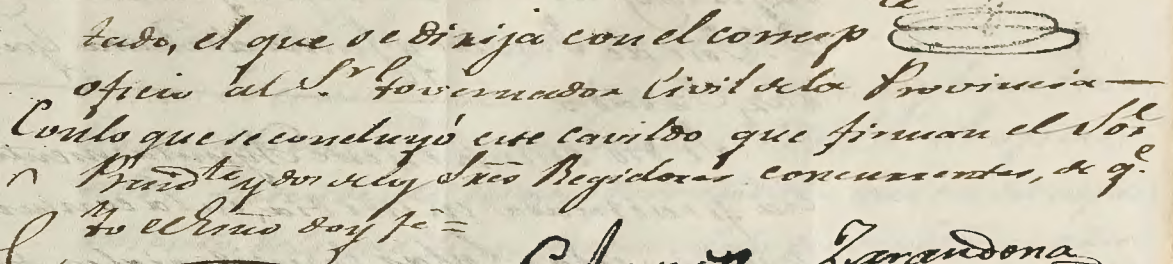 tado, el que se dirija con el corresp.te
oficio al S.r Governador Civil de la Provincia —
Con lo que se concluyó este cavildo que firman el Sôr
Presid.te y dos de los Sres Regidores concurrentes, de q.e
Yo el Esno doy fé =
Zarandona